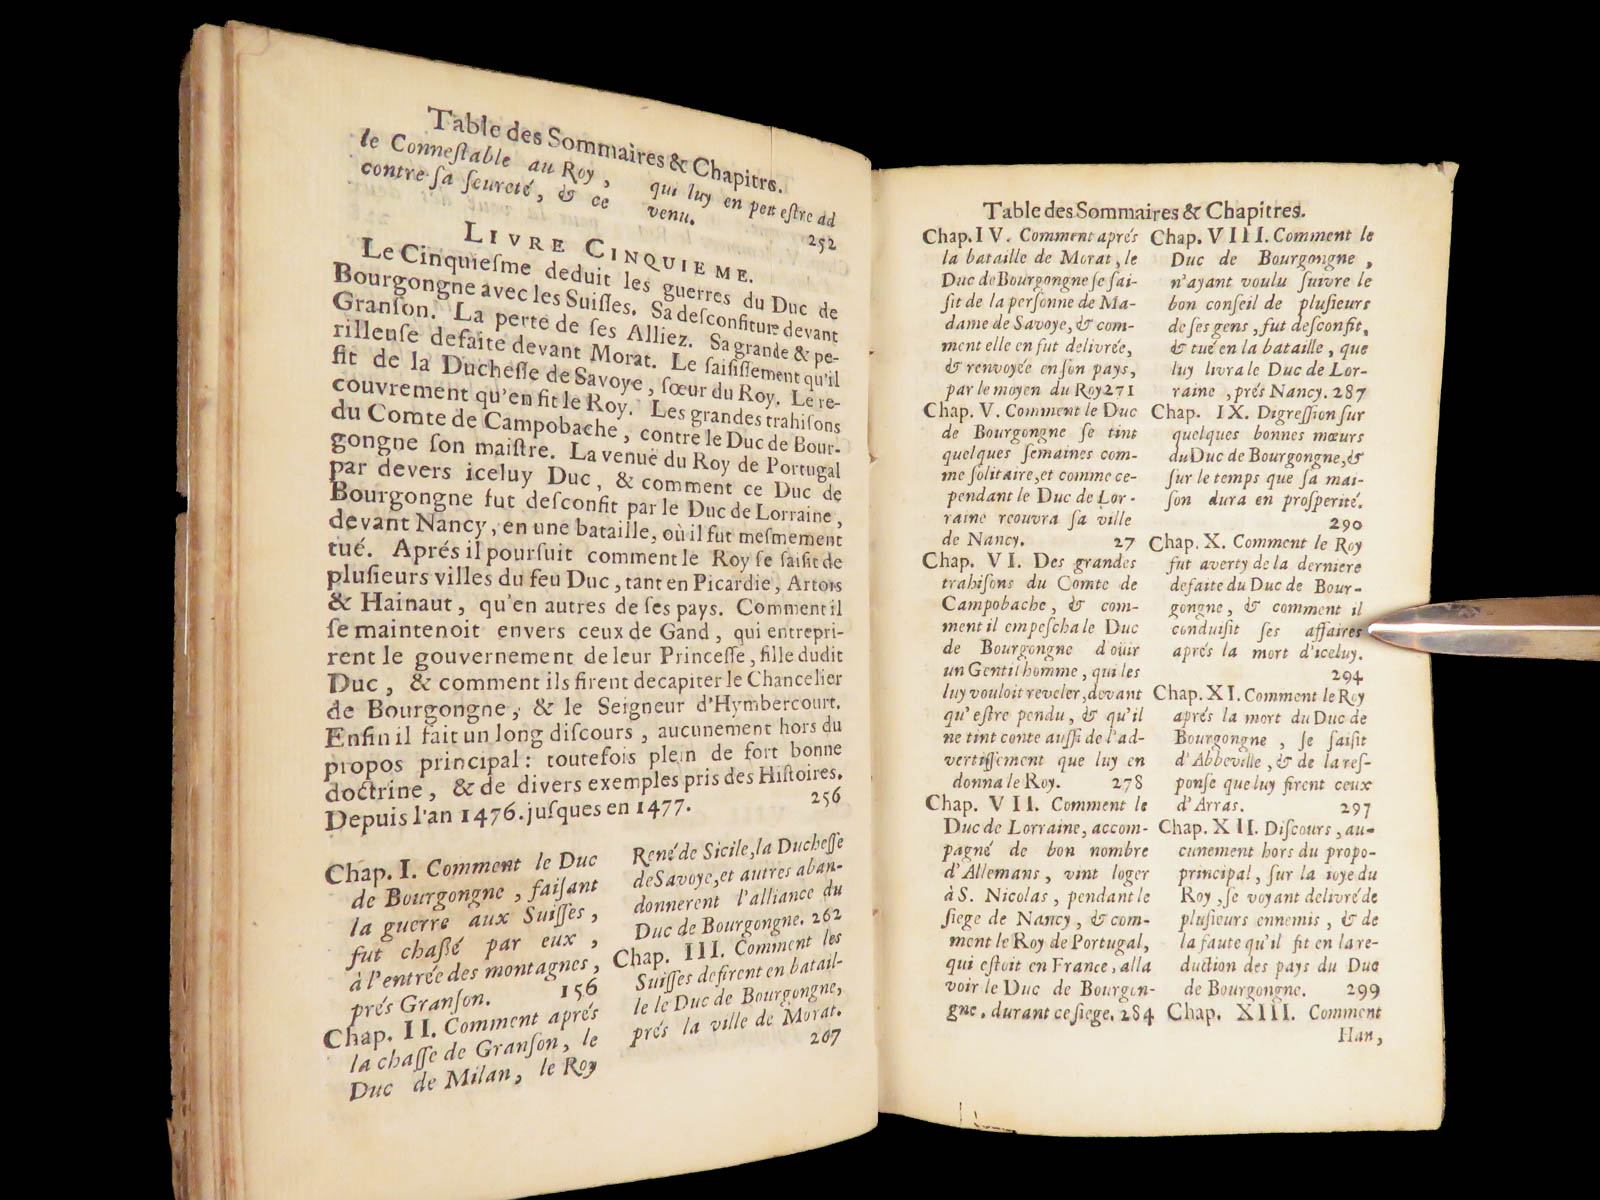 Table des Sommaires & Chapitrs.
le Conneſtable au Roy,
contre ſa ſeureté, & ce
qui luy en peut eſtre ad
venu. 252
LIVRE CINQUIEME.
Le Cinquieſme deduit les guerres du Duc de
Bourgongne avec les Suiſſes. Sa deſconfiture devant
Granſon. La perte de ſes Alliez. Sa grande & pe-
rilleuſe defaite devant Morat. Le ſaiſiſſement qu'il
fit de la Ducheſſe de Savoye, ſœur du Roy. Le re-
couvrement qu'en fit le Roy. Les grandes trahiſons
du Comte de Campobache, contre le Duc de Bour-
gongne ſon maiſtre. La venuë du Roy de Portugal
par devers iceluy Duc, & comment ce Duc de
Bourgongne fut deſconfit par le Duc de Lorraine,
devant Nancy, en une bataille, où il fut meſmement
tué. Aprés il pourſuit comment le Roy ſe ſaiſit de
pluſieurs villes du feu Duc, tant en Picardie, Artois
& Hainaut, qu'en autres de ſes pays. Comment il
ſe maintenoit envers ceux de Gand, qui entrepri-
rent le gouvernement de leur Princeſſe, fille dudit
Duc, & comment ils firent decapiter le Chancelier
de Bourgongne, & le Seigneur d'Hymbercourt.
Enfin il fait un long diſcours, aucunement hors du
propos principal: toutefois plein de fort bonne
doctrine, & de divers exemples pris des Hiſtoires.
Depuis l'an 1476. juſques en 1477. 256
Chap. I. Comment le Duc
de Bourgongne, faiſant
la guerre aux Suiſſes,
fut chaſſé par eux,
à l'entrée des montagnes,
prés Granſon. 156
Chap. II. Comment aprés
la chaſſe de Granſon, le
Duc de Milan, le Roy
René de Sicile, la Ducheſſe
de Savoye, et autres aban-
donnerent l'alliance du
Duc de Bourgongne. 262
Chap. III. Comment les
Suiſſes defirent en batail-
le le Duc de Bourgongne,
prés la ville de Morat.
207
Table des Sommaires & Chapitres.
Chap. IV. Comment aprés
la bataille de Morat, le
Duc de Bourgongne ſe ſai-
ſit de la perſonne de Ma-
dame de Savoye, & com-
ment elle en fut delivrée,
& renvoyée en ſon pays,
par le moyen du Roy 271
Chap. V. Comment le Duc
de Bourgongne ſe tint
quelques ſemaines com-
me ſolitaire, et comme ce-
pendant le Duc de Lor-
raine recouvra ſa ville
de Nancy. 27
Chap. VI. Des grandes
trahiſons du Comte de
Campobache, & com-
ment il empeſcha le Duc
de Bourgongne d'oüir
un Gentilhomme, qui les
luy vouloit reveler, devant
qu'eſtre pendu, & qu'il
ne tint conte auſſi de l'ad-
vertiſſement que luy en
donna le Roy. 278
Chap. VII. Comment le
Duc de Lorraine, accom-
pagné de bon nombre
d'Allemans, vint loger
à S. Nicolas, pendant le
ſiege de Nancy, & com-
ment le Roy de Portugal,
qui eſtoit en France, alla
voir le Duc de Bourgon-
gne, durant ce ſiege. 284
Chap. VIII. Comment le
Duc de Bourgongne,
n'ayant voulu ſuivre le
bon conſeil de pluſieurs
de ſes gens, fut deſconfit,
& tué en la bataille, que
luy livra le Duc de Lor-
raine, prés Nancy. 287
Chap. IX. Digreſſion ſur
quelques bonnes mœurs
du Duc de Bourgongne, &
ſur le temps que ſa mai-
ſon dura en proſperité.
290
Chap. X. Comment le Roy
fut averty de la derniere
defaite du Duc de Bour-
gongne, & comment il
conduiſit ſes affaires
aprés la mort d'iceluy.
294
Chap. XI. Comment le Roy
aprés la mort du Duc de
Bourgongne, ſe ſaiſit
d'Abbeville, & de la reſ-
ponſe que luy firent ceux
d'Arras. 297
Chap. XII. Diſcours, au-
cunement hors du propo-
principal, ſur la ioye du
Roy, ſe voyant delivré de
pluſieurs ennemis, & de
la faute qu'il fit en la re-
duction des pays du Duc
de Bourgongne. 299
Chap. XIII. Comment
Han,